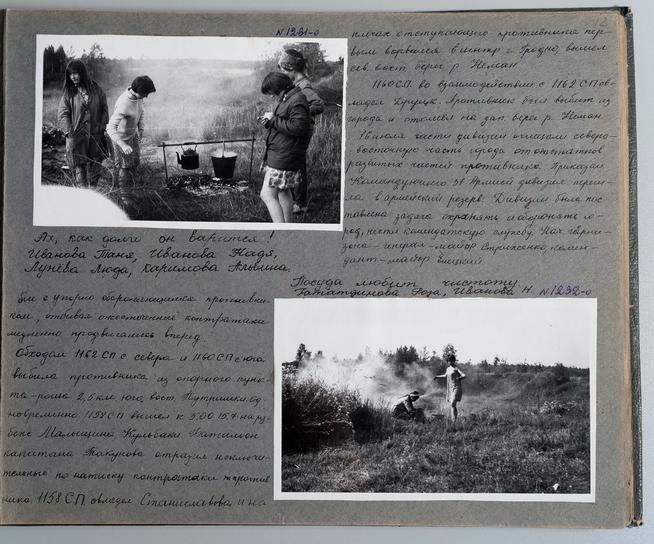 N 1231-о
Ах, как долго он варится!
Иванова Таня, Иванова Надя,
Лунёва Люда, Каримова Альвина.
бы с упорно обороняющимся противни-
ком, отбивая ожесточенные контратаки
медленно продвигались вперед.
Обходом 1162 СП с севера и 1160 СП с юга
выбила противника из опорного пунк-
та-роща 2,5 км. юго. вост. Путришки. Од-
новременно 1158 СП вышел к 5.00 15.7 на ру-
беж Малыщина, Кульбаки. Батальон
капитана Такунова отразил исключи-
тельные по натиску контратаки и против
ника. 1158 СП овладел Станиславово, и на
плечах отступающего противника пер-
вым ворвался в центр г. Гродно, вышел
сев. вост. берег р. Неман.
1160 СП. во взаимодействии с 1162 СП ов-
ладел Противник был выбит из
города и отошел на зап. берег р. Неман.
16 июля части дивизии очищали северо-
восточную часть города от остатков
разбитых частей противника. Приказом
Командующего 50 Армией дивизия переш-
ла в армейский резерв. Дивизии была пос-
тавлена задача охранять и оборонять го-
род, нести комендатскую службу. Нач. гарни-
зона - генерал-майор комен-
дант - майор
Посуда любит чистоту
Гататдинова Роза, Иванова Н. N 1232-о